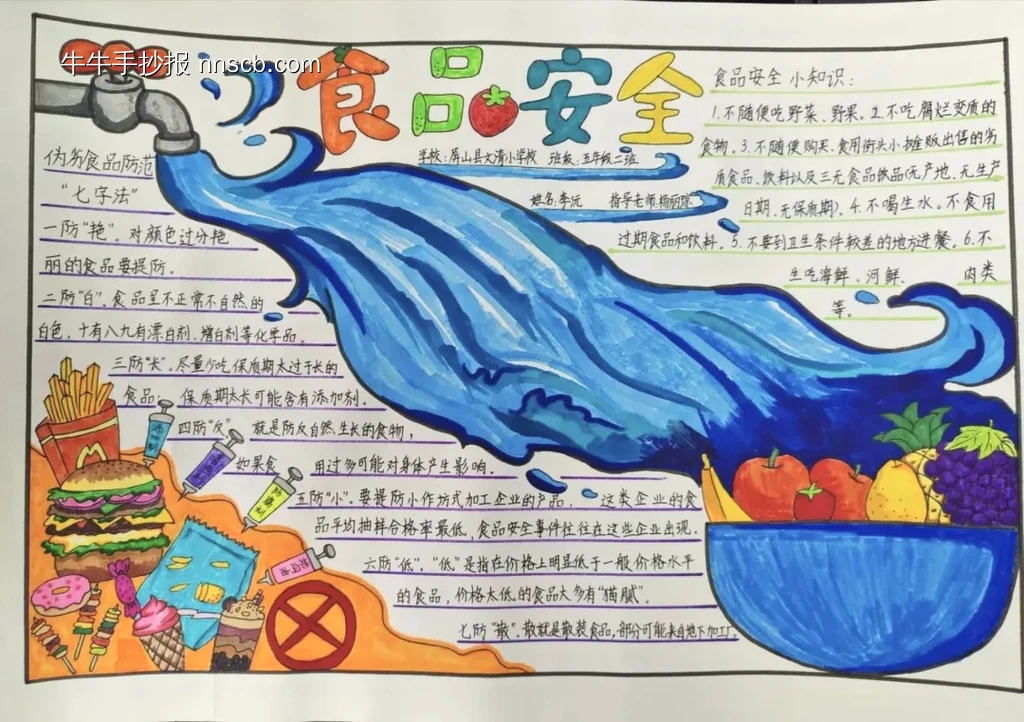 牛牛手抄报 nnscb.com
食品安全
学校:屏山县文清小学校 班级:五年级二班
姓名:李沅 指导老师:杨丽琼
伪劣食品防范
“七字法”
一防“艳”。对颜色过分艳
丽的食品要提防。
二防“白”。食品呈不正常不自然的
白色,十有八九有漂白剂、增白剂等化学品。
三防“长”。尽量少吃保质期太过于长的
食品。保质期太长可能含有添加剂.
四防“反” 就是防反自然生长的食物,
如果食 用过多可能对身体产生影响.
五防“小”.要提防小作方式加工企业的产品, 这类企业的食
品平均抽样合格率最低,食品安全事件往往在这些企业出现.
六防“低”.“低”是指在价格上明显低于一般价格水平
的食品,价格太低的食品大多有“猫腻”.
七防“散”.散就是散装食品,部分可能来自地下加工厂.
食品安全小知识:
1.不随便吃野菜、野果.2.不吃腐烂变质的
食物.3.不随便购买、食用街头小摊贩出售的劣
质食品、饮料以及三无食品饮品(无产地、无生产
日期、无保质期).4.不喝生水。不食用
过期食品和饮料。5.不要到卫生条件较差的地方进餐。6.不
生吃海鲜、河鲜、 肉类
等。
添加剂
防腐剂